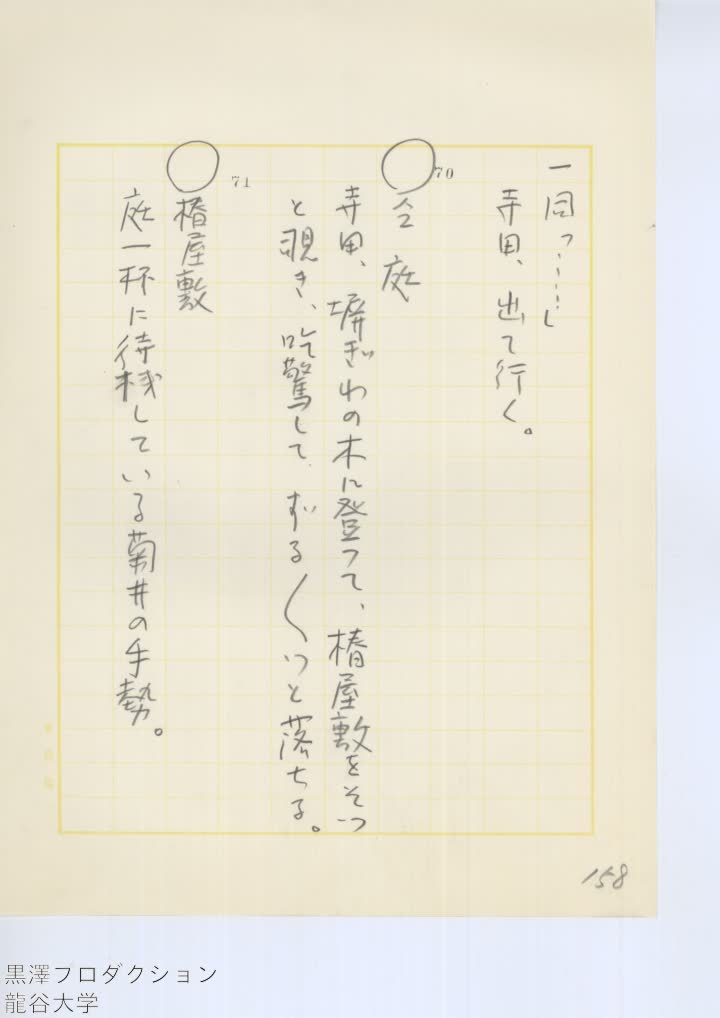 一同「‥‥‥」
寺田、出て行く。
○70
仝 庭
寺田、塀ぎわの木に登って、椿屋敷をそっ
と覗き、吃驚して ずる〱っと落ちる。
○71
椿屋敷
庭一杯に待機している菊井の手勢。
158
黒澤プロダクション
龍谷大学